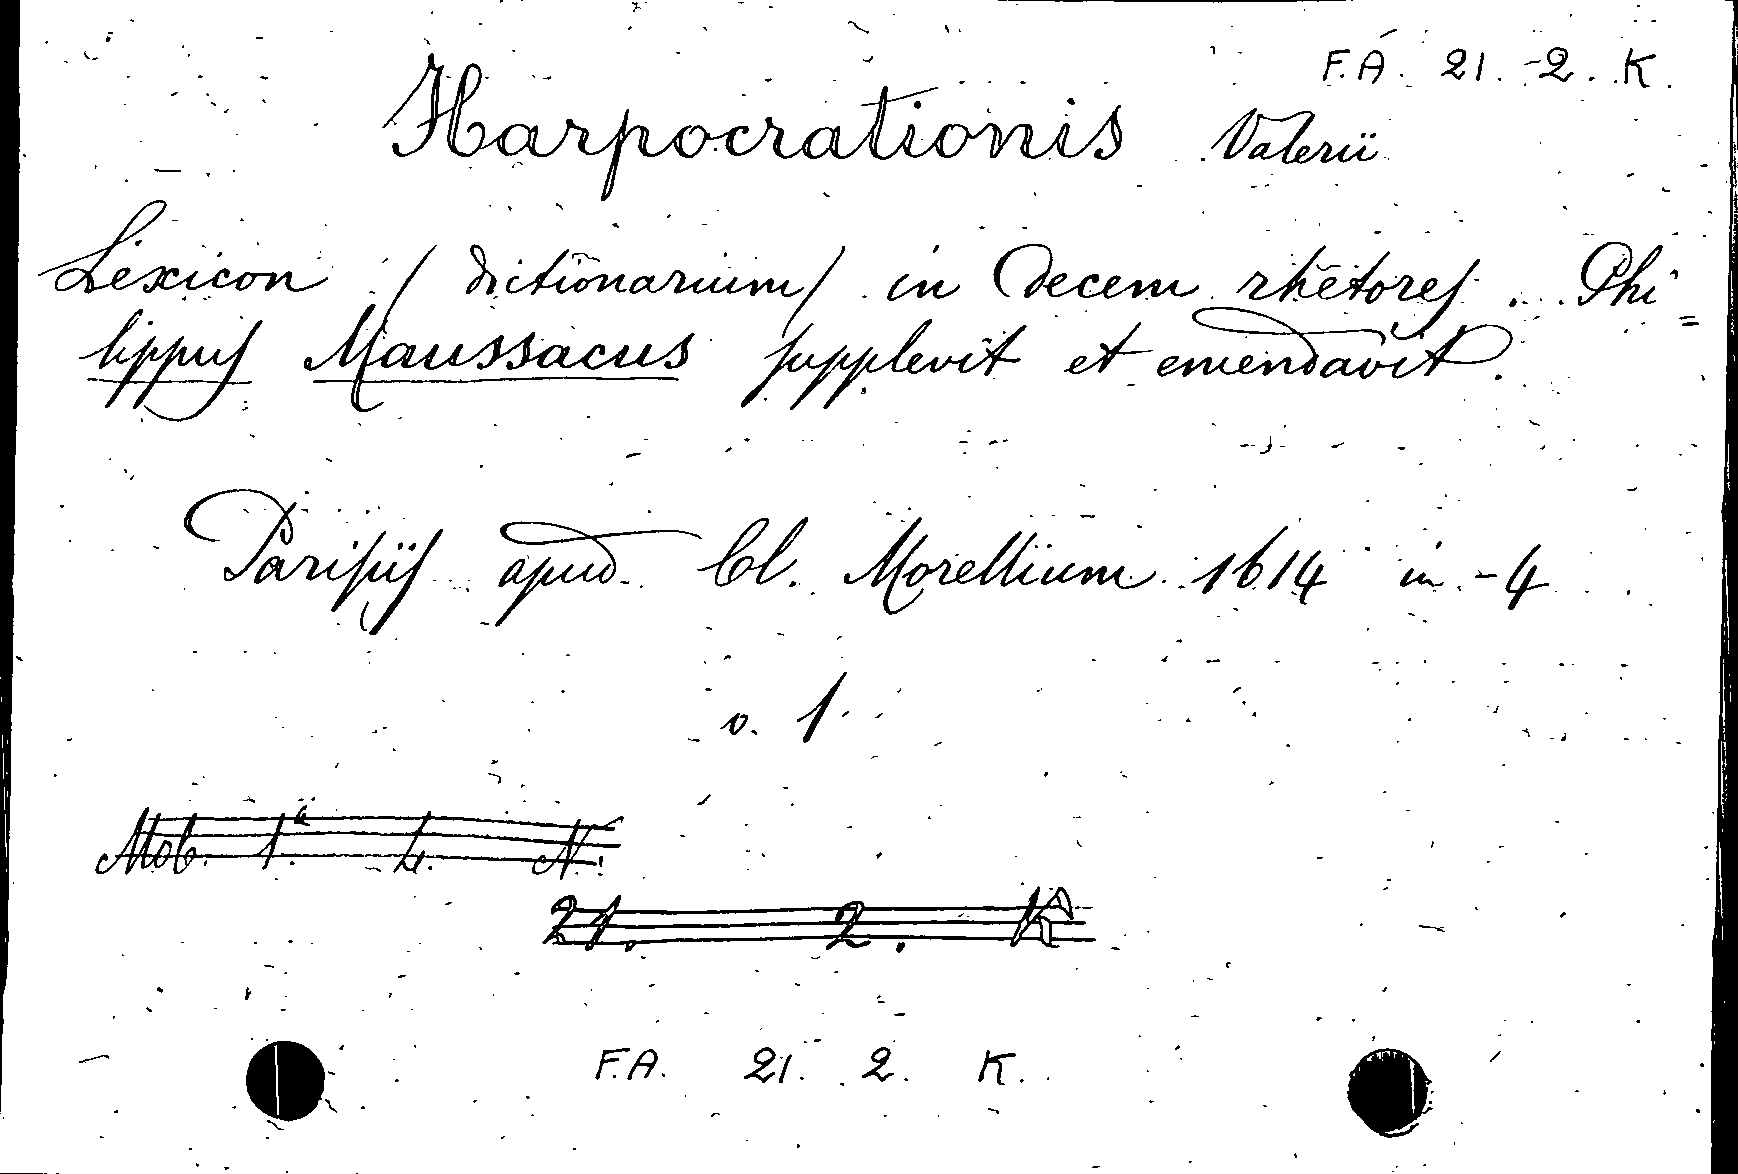 F.A. 21. -2. K.
Harpocrationis Valerii
Lexicon (dictionarium) in decem rhetores. Phi=
lippus Maussacus supplevit et emendavit.
Parisiis apud Cl. Morellium 1614 in-4
v. 1.
Mob. 1.a L. N.
21. 2. K
F.A. 21. 2. K.